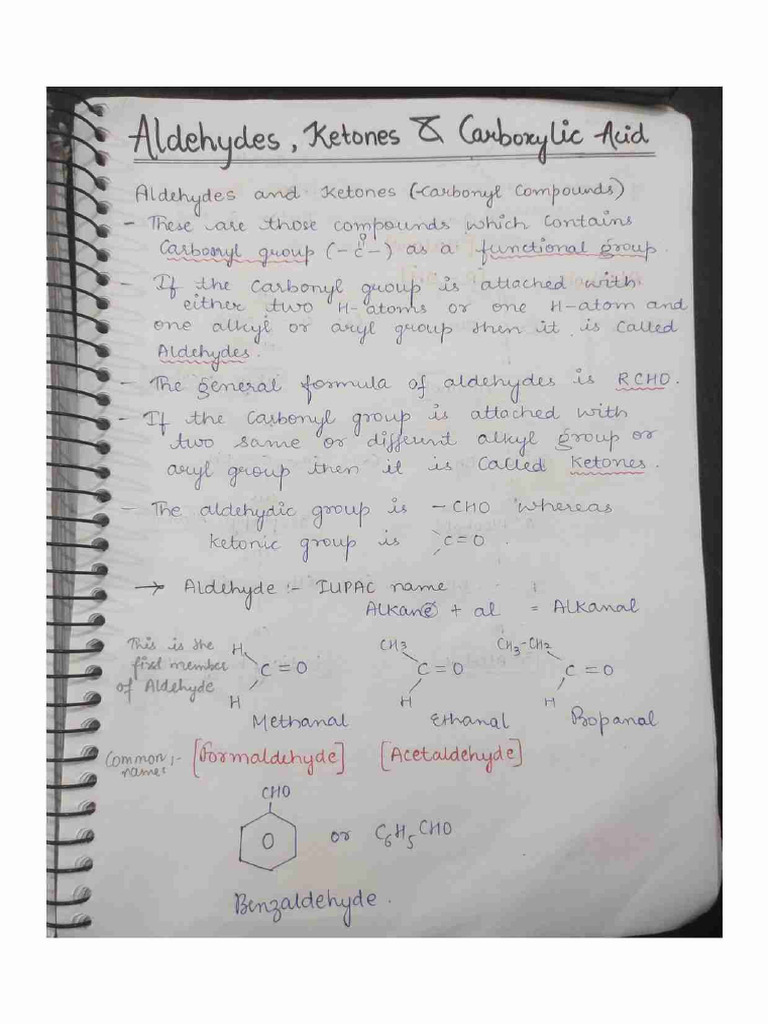 Aldehydes, Ketones & Carboxylic Acid
Aldehydes and Ketones (-Carbonyl Compounds)
- These are those compounds which contains
Carbonyl group (-C-) as a functional group.
O
- If the Carbonyl group is attached with
either two H-atoms or one H-atom and
one alkyl or aryl group then it is called
Aldehydes.
- The general formula of aldehydes is RCHO.
- If the Carbonyl group is attached with
two same or different alkyl group or
aryl group then it is called Ketones.
- The aldehydic group is -CHO whereas
ketonic group is >C=O.
→ Aldehyde :- IUPAC name
Alkane + al = Alkanal
This is the
first member
of Aldehyde
H
C=O
H
CH3
C=O
H
CH3-CH2
C=O
H
Methanal Ethanal Propanal
Common :-
name:
[Formaldehyde] [Acetaldehyde]
CHO
O or C6H5CHO
Benzaldehyde.